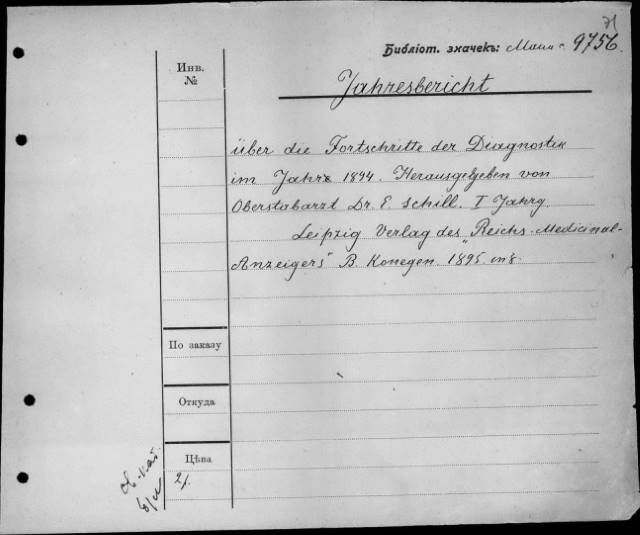 71
Библіот. значекъ: 9756.
Инв.
№
Jahresbericht
über die Fortschritte der Diagnostik
im Jahre 1894. Herausgegeben von
Oberstabarzt Dr. E. Schill. I Jahrg.
Leipzig Verlag des „Reichs-Medicinal-
Anzeigers" B. Konegen 1895. in 8.
По заказу
Откуда
Цѣна
2/.